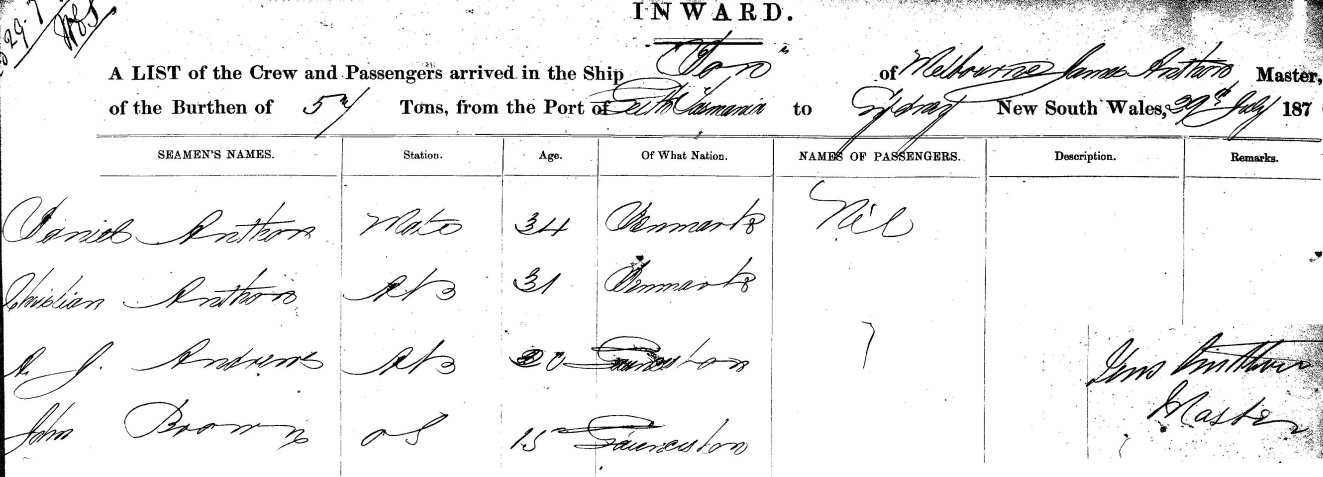 29.7
INWARD.
A LIST of the Crew and Passengers arrived in the Ship of Melbourne James Anthon Master,
of the Burthen of Tons, from the Port of Tasmania to Sydney New South Wales, 29th July 187
SEAMEN'S NAMES. Station. Age. Of What Nation. NAMES OF PASSENGERS. Description. Remarks.
Daniel Anthon Mate 34 Denmark Nil
Christian Anthon AB 31 Denmark
A. J. Andrews AB 20 Launceston
John Brown OS 15 Launceston
Jens Anthon
Master